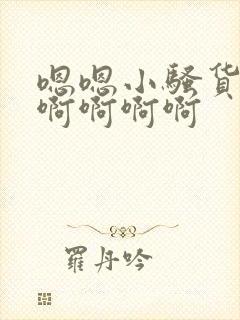 嗯嗯小骚货
啊啊啊啊
羅丹吟